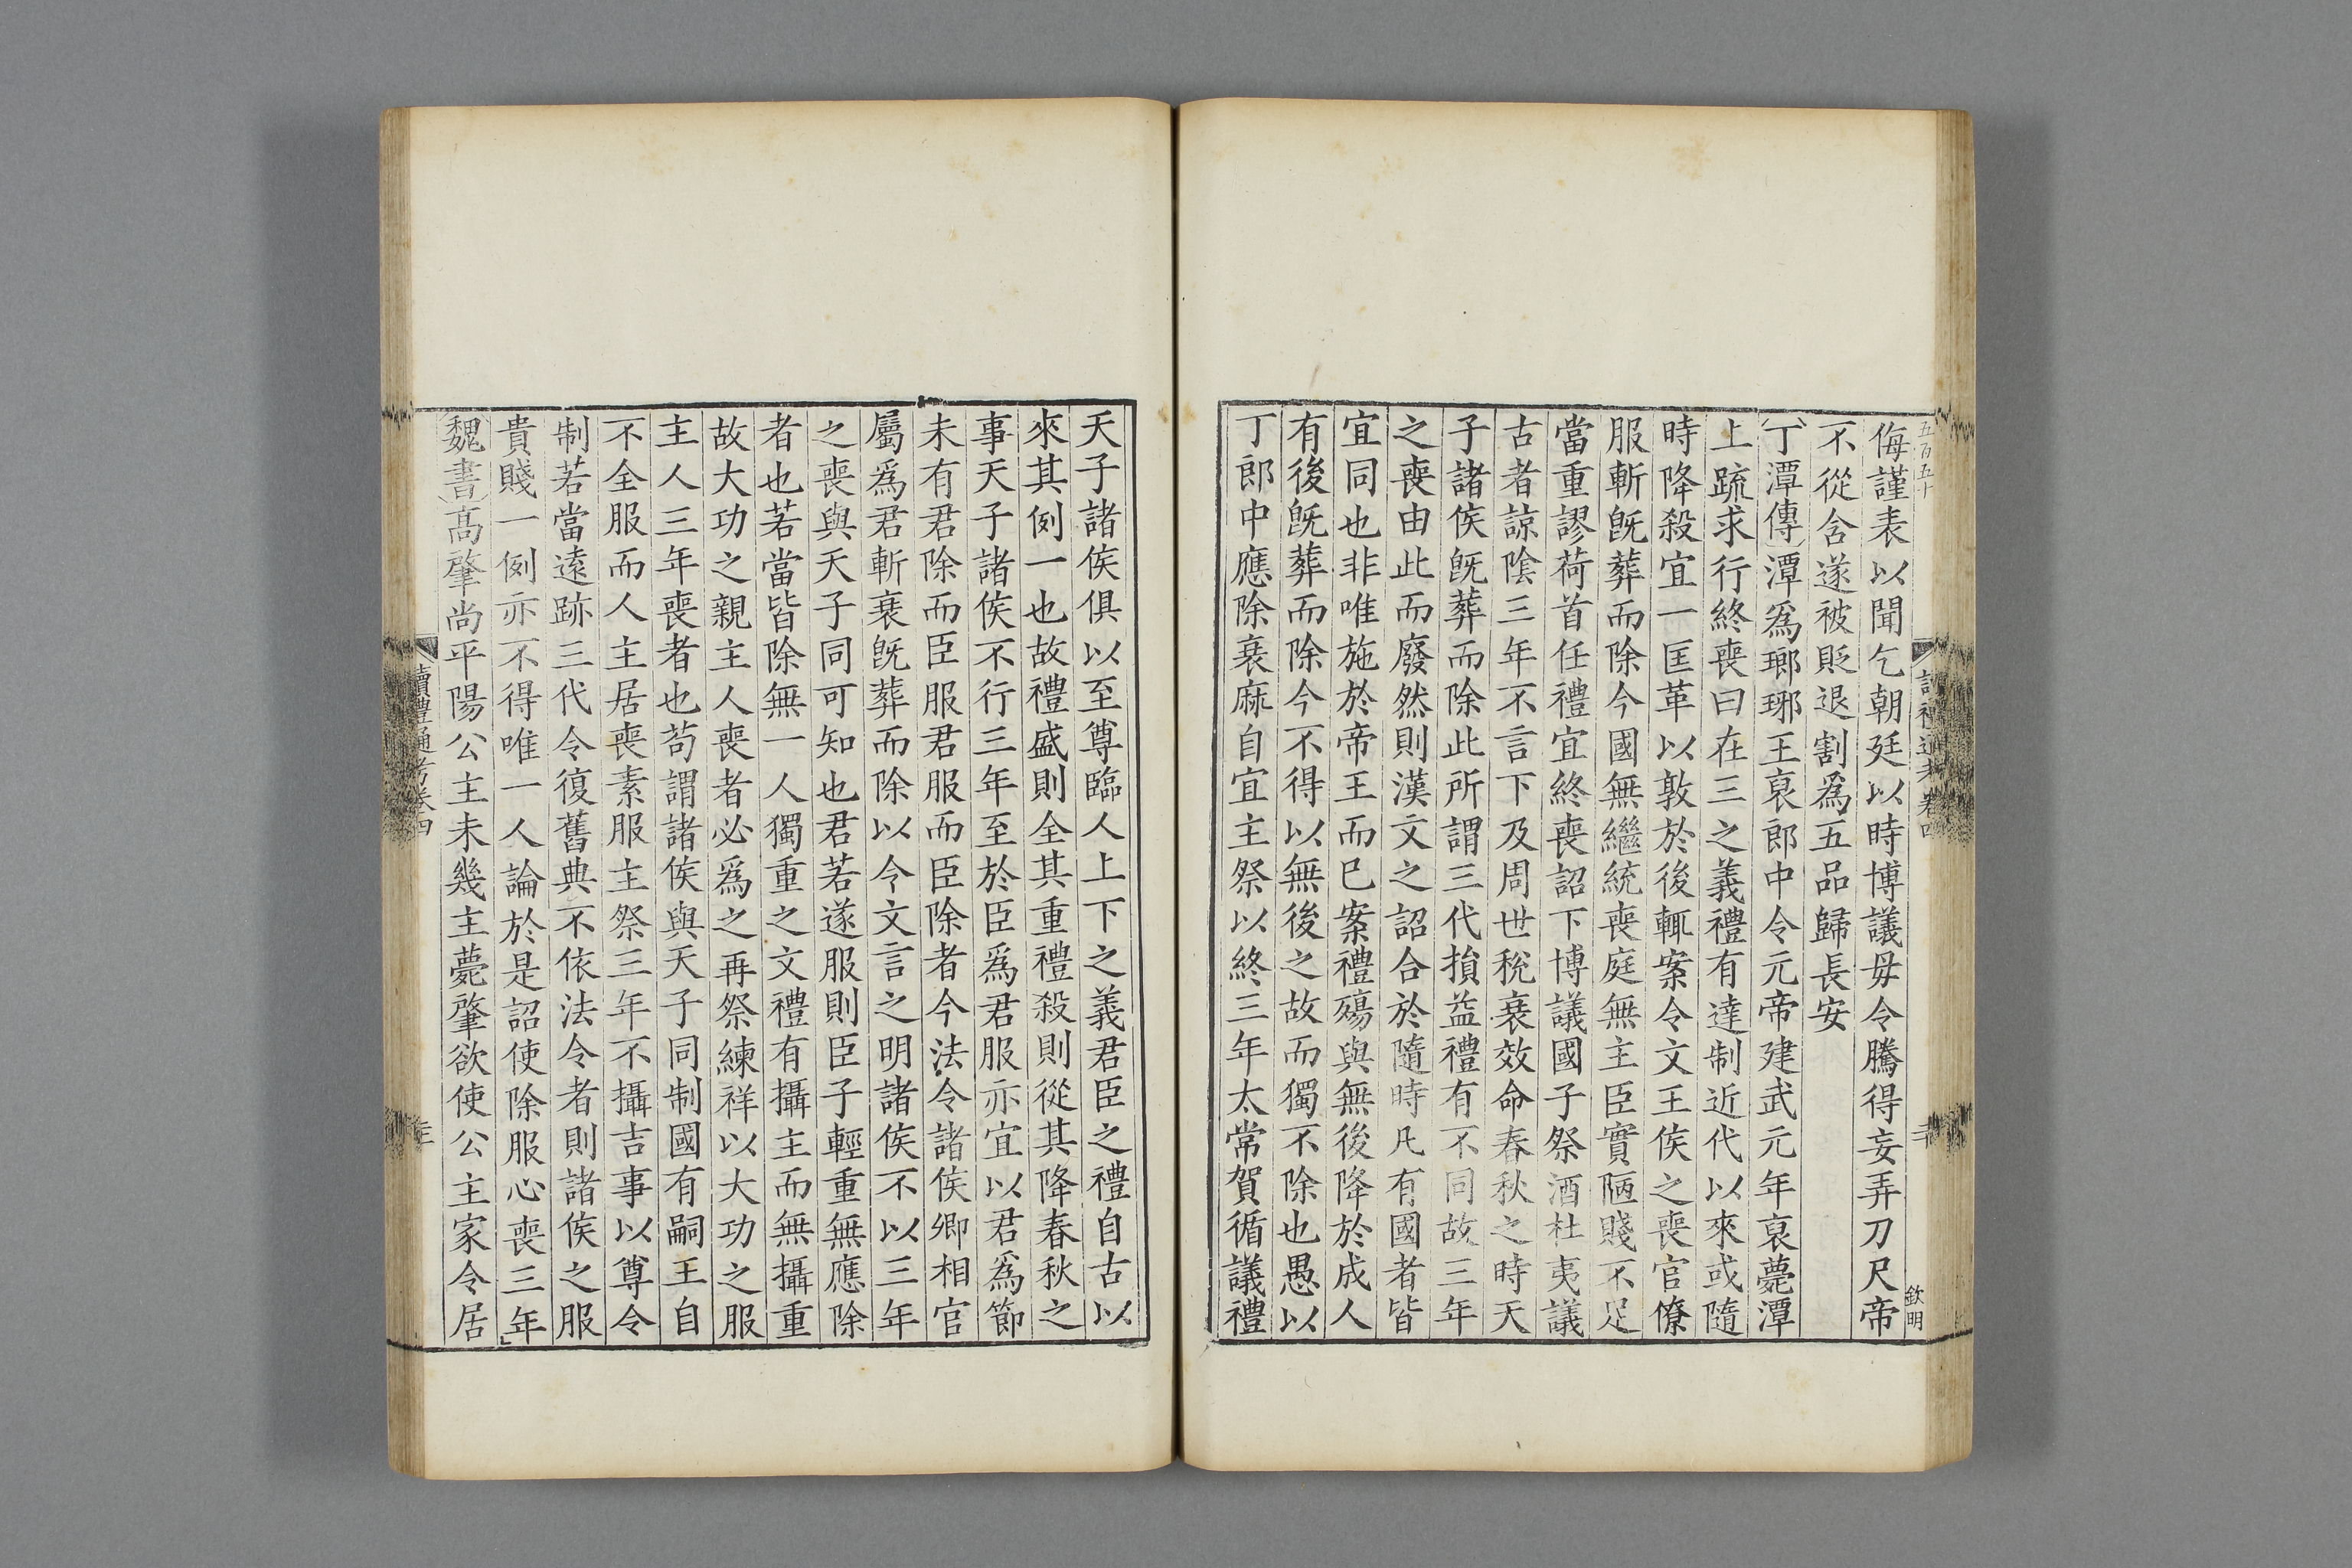 五百五十
侮謹表以聞乞朝廷以時博議毋令騰得妄弄刀尺帝
不從含遂被貶退割爲五品歸長安
丁潭傳潭爲瑯琊王裒郎中令元帝建武元年裒薨潭
上疏求行終喪曰在三之義禮有達制近代以來或隨
時降殺宜一匡革以敦於後輒案令文王侯之喪官僚
服斬旣葬而除今國無繼統喪庭無主臣實陋賤不足
當重謬荷首任禮宜終喪詔下博議國子祭酒杜夷議
古者諒陰三年不言下及周世稅衰效命春秋之時天
子諸侯旣葬而除此所謂三代損益禮有不同故三年
之喪由此而廢然則漢文之詔合於隨時凡有國者皆
宜同也非唯施於帝王而已案禮殤與無後降於成人
有後旣葬而除今不得以無後之故而獨不除也愚以
丁郎中應除衰麻自宜主祭以終三年太常賀循議禮
欽明
天子諸侯俱以至尊臨人上下之義君臣之禮自古以
來其例一也故禮盛則全其重禮殺則從其降春秋之
事天子諸侯不行三年至於臣爲君服亦宜以君爲節
未有君除而臣服君服而臣除者今法令諸侯卿相官
屬爲君斬衰旣葬而除以令文言之明諸侯不以三年
之喪與天子同可知也君若遂服則臣子輕重無應除
者也若當皆除無一人獨重之文禮有攝主而無攝重
故大功之親主人喪者必爲之再祭練祥以大功之服
主人三年喪者也苟謂諸侯與天子同制國有嗣王自
不全服而人主居喪素服主祭三年不攝吉事以尊令
制若當遠跡三代令復舊典不依法令者則諸侯之服
貴賤一例亦不得唯一人論於是詔使除服心喪三年
魏書高肇尚平陽公主未幾主薨肇欲使公主家令居
讀禮通考卷四